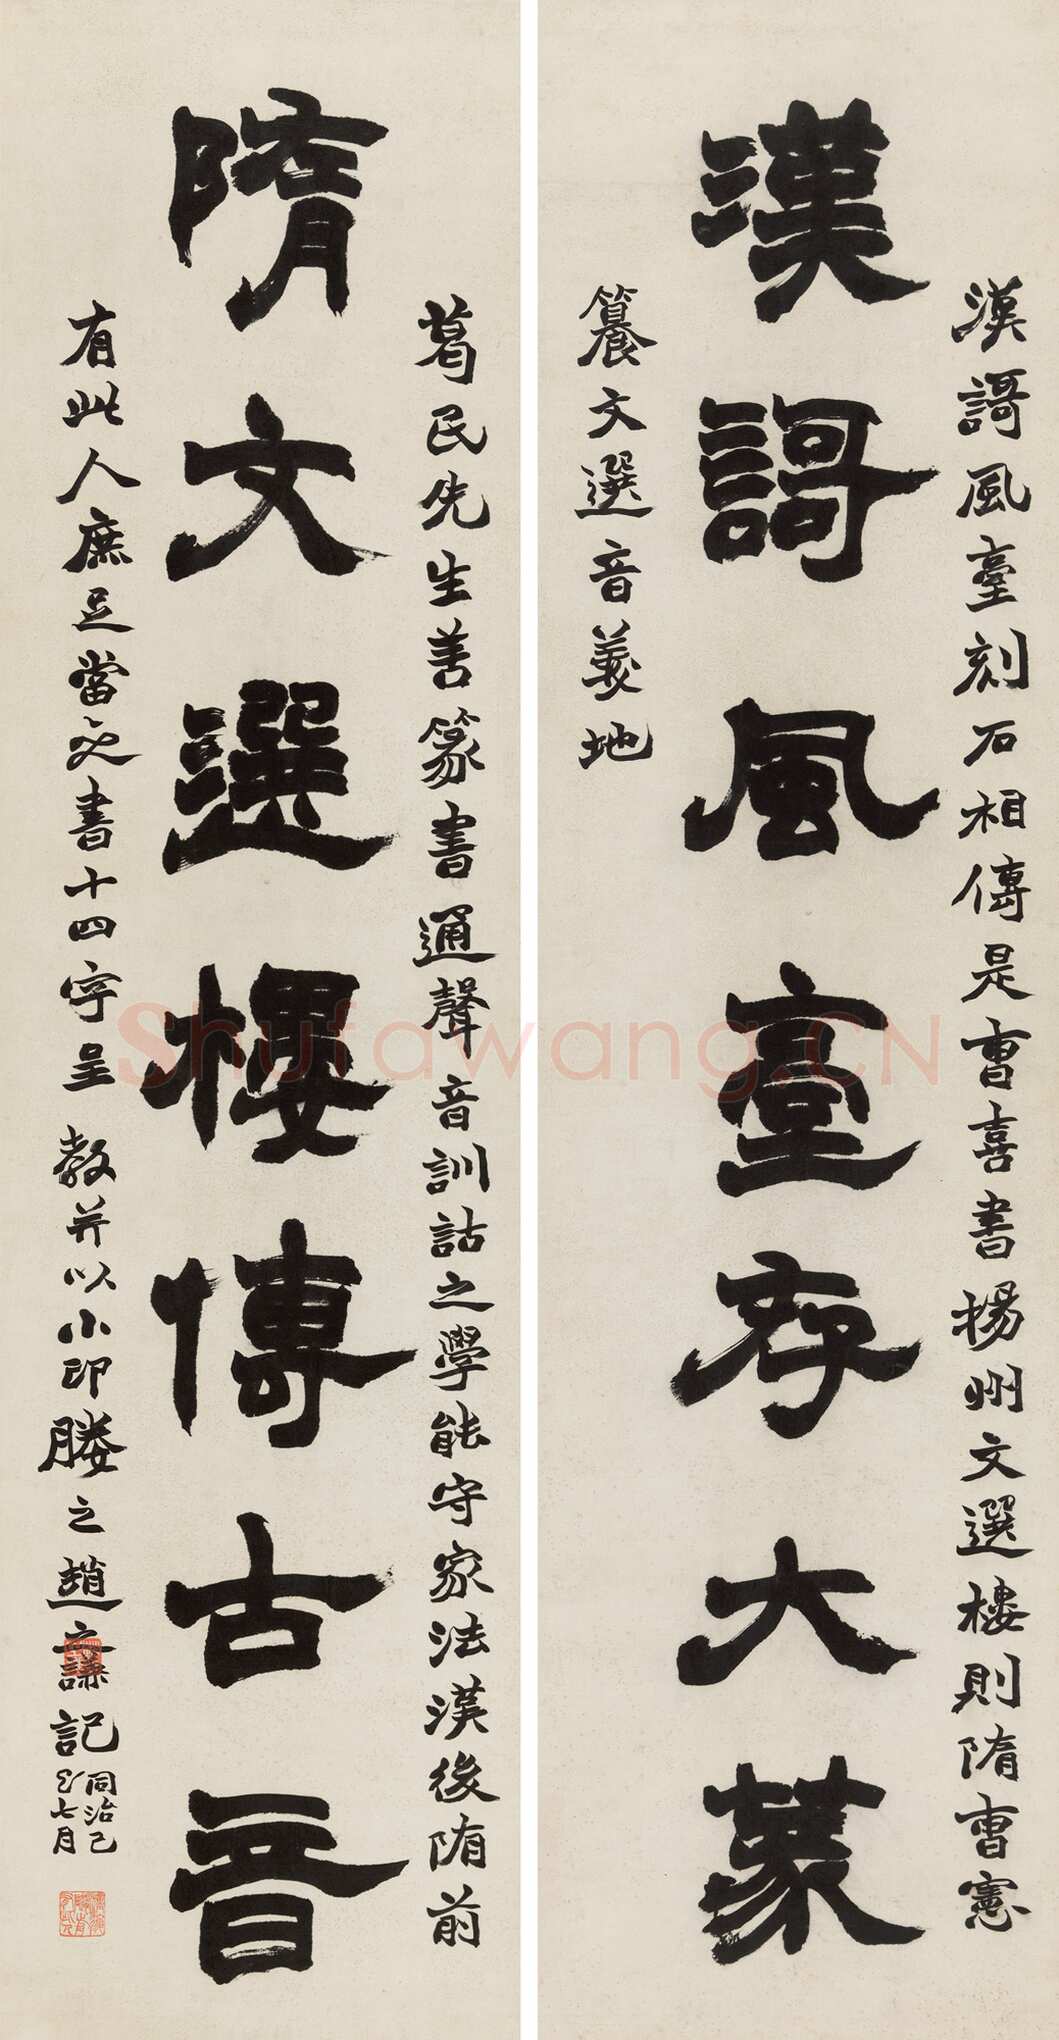 漢謌風臺存大篆
漢謌風臺刻石相傳是曹喜書揚州文選樓則隋曹憲
篹文選音義地
隋文選樓傳古音
葛民先生善篆書通聲音訓詁之學能守家法漢後隋前
有此人庶足當之書十四字呈教并以小印媵之趙之謙記
同治己
巳七月
Shufawang.CN